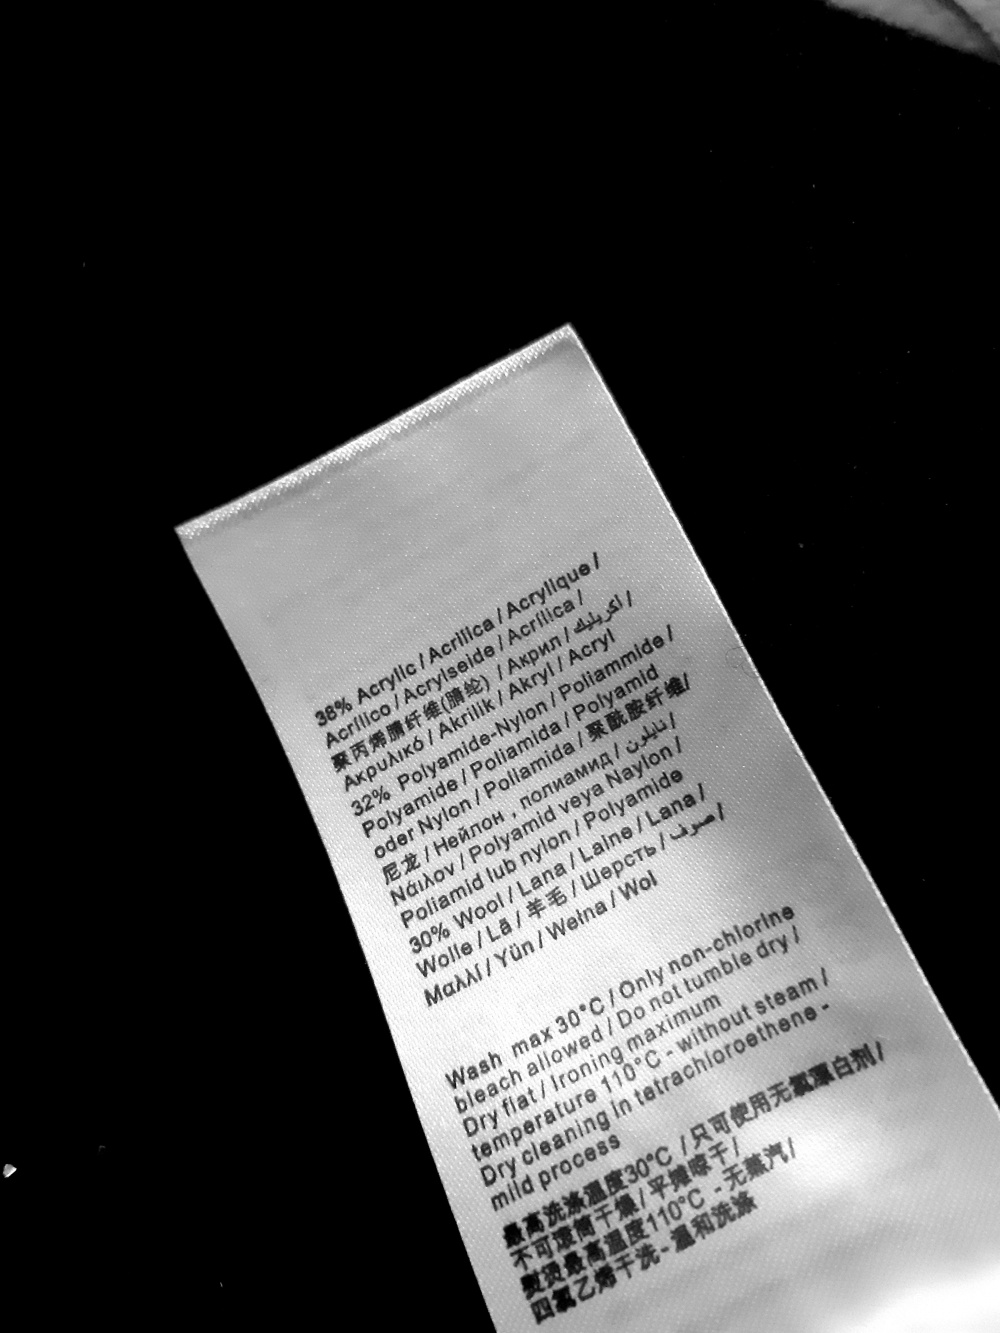 38% Acrylic / Acrilica / Acrylique /
Acrílico / Acrylseide / Acrílica /
聚丙烯腈纤维(腈纶) / Акрил / اكريليك /
Ακρυλικό / Akrilik / Akryl / Acryl
32% Polyamide-Nylon / Poliammide /
Polyamide / Poliamida / Polyamid
oder Nylon / Poliamida / 聚酰胺纤维/
尼龙 / Нейлон , полиамид / نايلون /
Νάιλον / Polyamid veya Naylon /
Poliamid lub nylon / Polyamide
30% Wool / Lana / Laine / Lana /
Wolle / Lã / 羊毛 / Шерсть / صوف /
Μαλλί / Yün / Wełna / Wol
Wash max 30°C / Only non-chlorine
bleach allowed / Do not tumble dry /
Dry flat / Ironing maximum
temperature 110°C - without steam /
Dry cleaning in tetrachloroethene -
mild process
最高洗涤温度30°C / 只可使用无氯漂白剂 /
不可滚筒干燥 / 平摊晾干 /
熨烫最高温度110°C - 无蒸汽 /
四氯乙烯干洗 - 温和洗涤